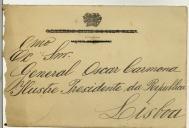 Exmo
Sr. Snr.
General Oscar Carmona
Ilustre Presidente da Republica
Lisboa